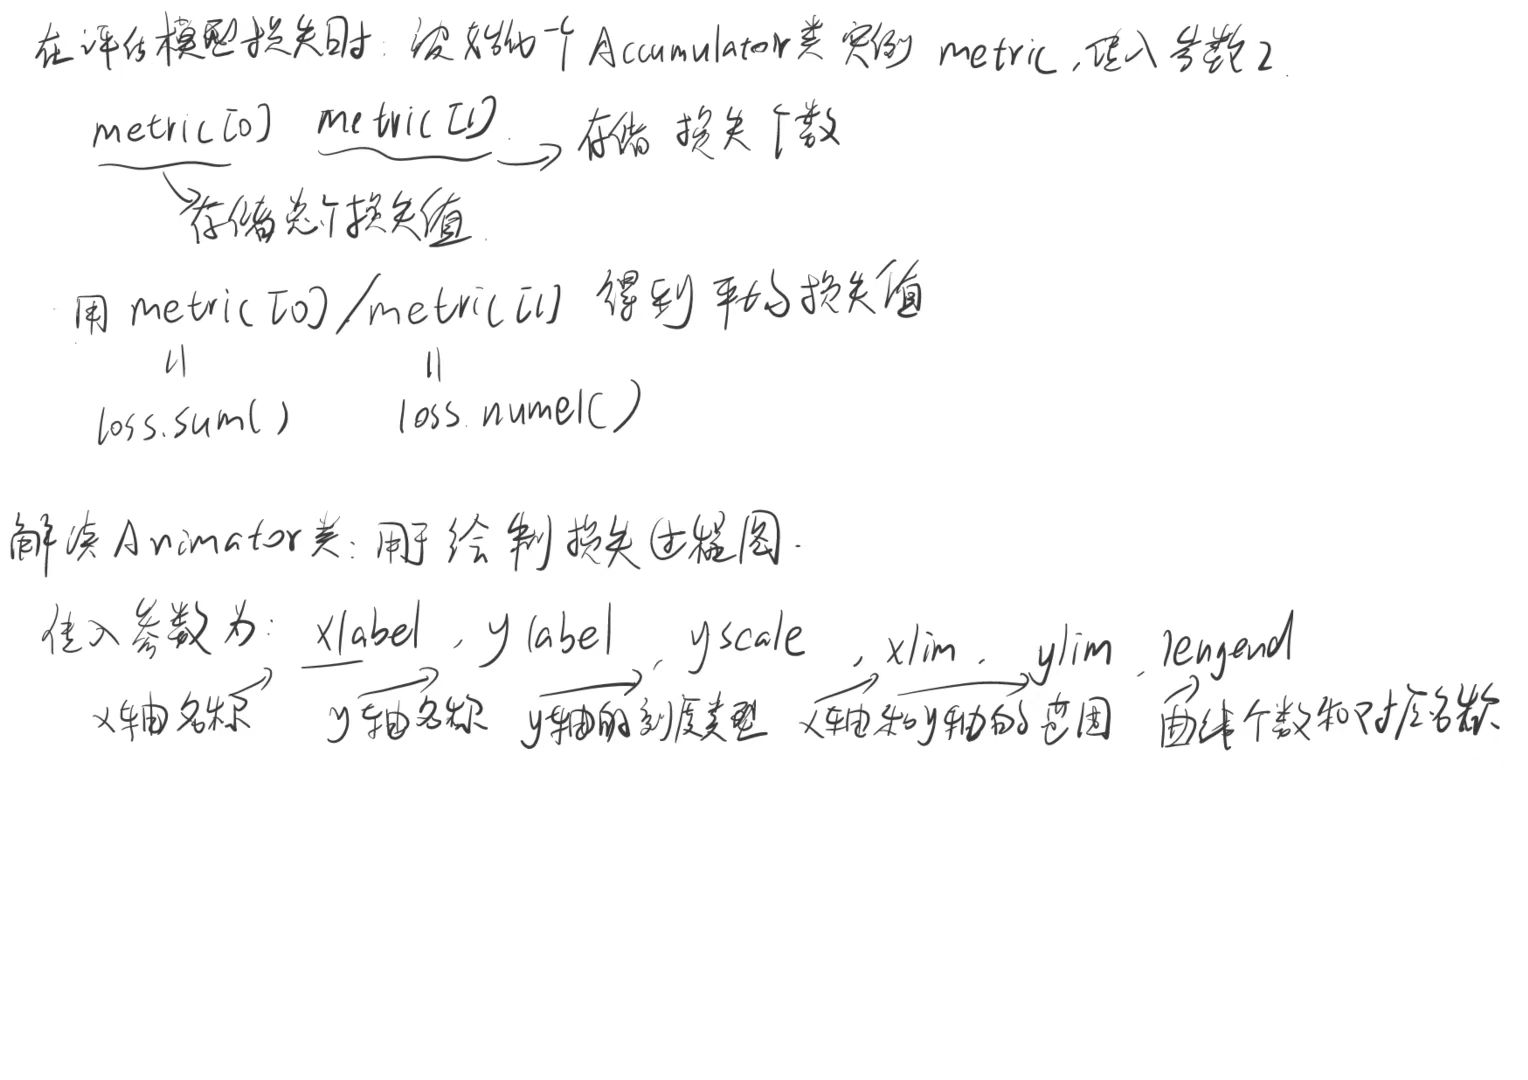 在评估模型损失时：初始化一个Accumulator类实例 metric，传入参数2.
metric[0] metric[1] → 存储 损失个数
存储总个损失值
用 metric[0]/metric[1] 得到平均损失值
loss.sum() loss.numel()
解读Animator类：用于绘制损失过程图.
传入参数为：xlabel, ylabel, yscale, xlim, ylim, lengend
x轴名称 y轴名称 y轴的刻度类型 x轴和y轴的范围 曲线个数和对应名称